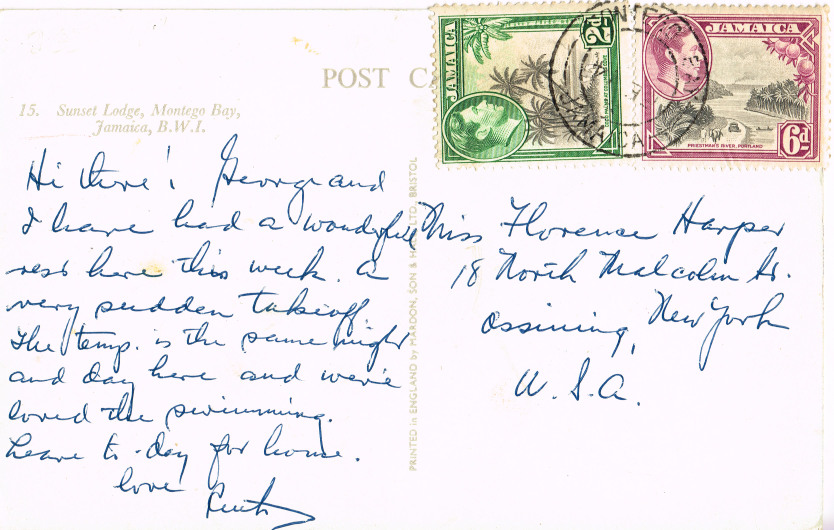 POST
15. Sunset Lodge, Montego Bay,
Jamaica, B.W.I.
JAMAICA
2d
JAMAICA
PRIESTMAN'S RIVER, PORTLAND
6d
JAMAICA
Hi there! George and
I have had a wonderful
rest here this week. a
very sudden takeoff.
The temp. is the same night
and day here and we've
loved the swimming.
Leave to-day for home.
love
Ruth
PRINTED in ENGLAND by MARDON, SON & HALL, LTD., BRISTOL
Miss Florence Harper
18 North Malcolm St.
Ossining, New York
U.S.A.